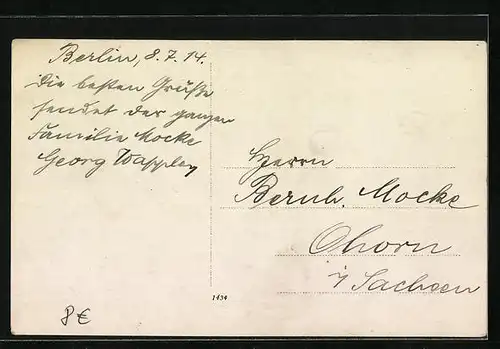 Berlin, 8.7.14.
Die besten Grüße
sendet der ganzen
Familie Mocke
Georg Wappler
Herrn
Bernh. Mocke
Ohorn
i/ Sachsen
1494
8€